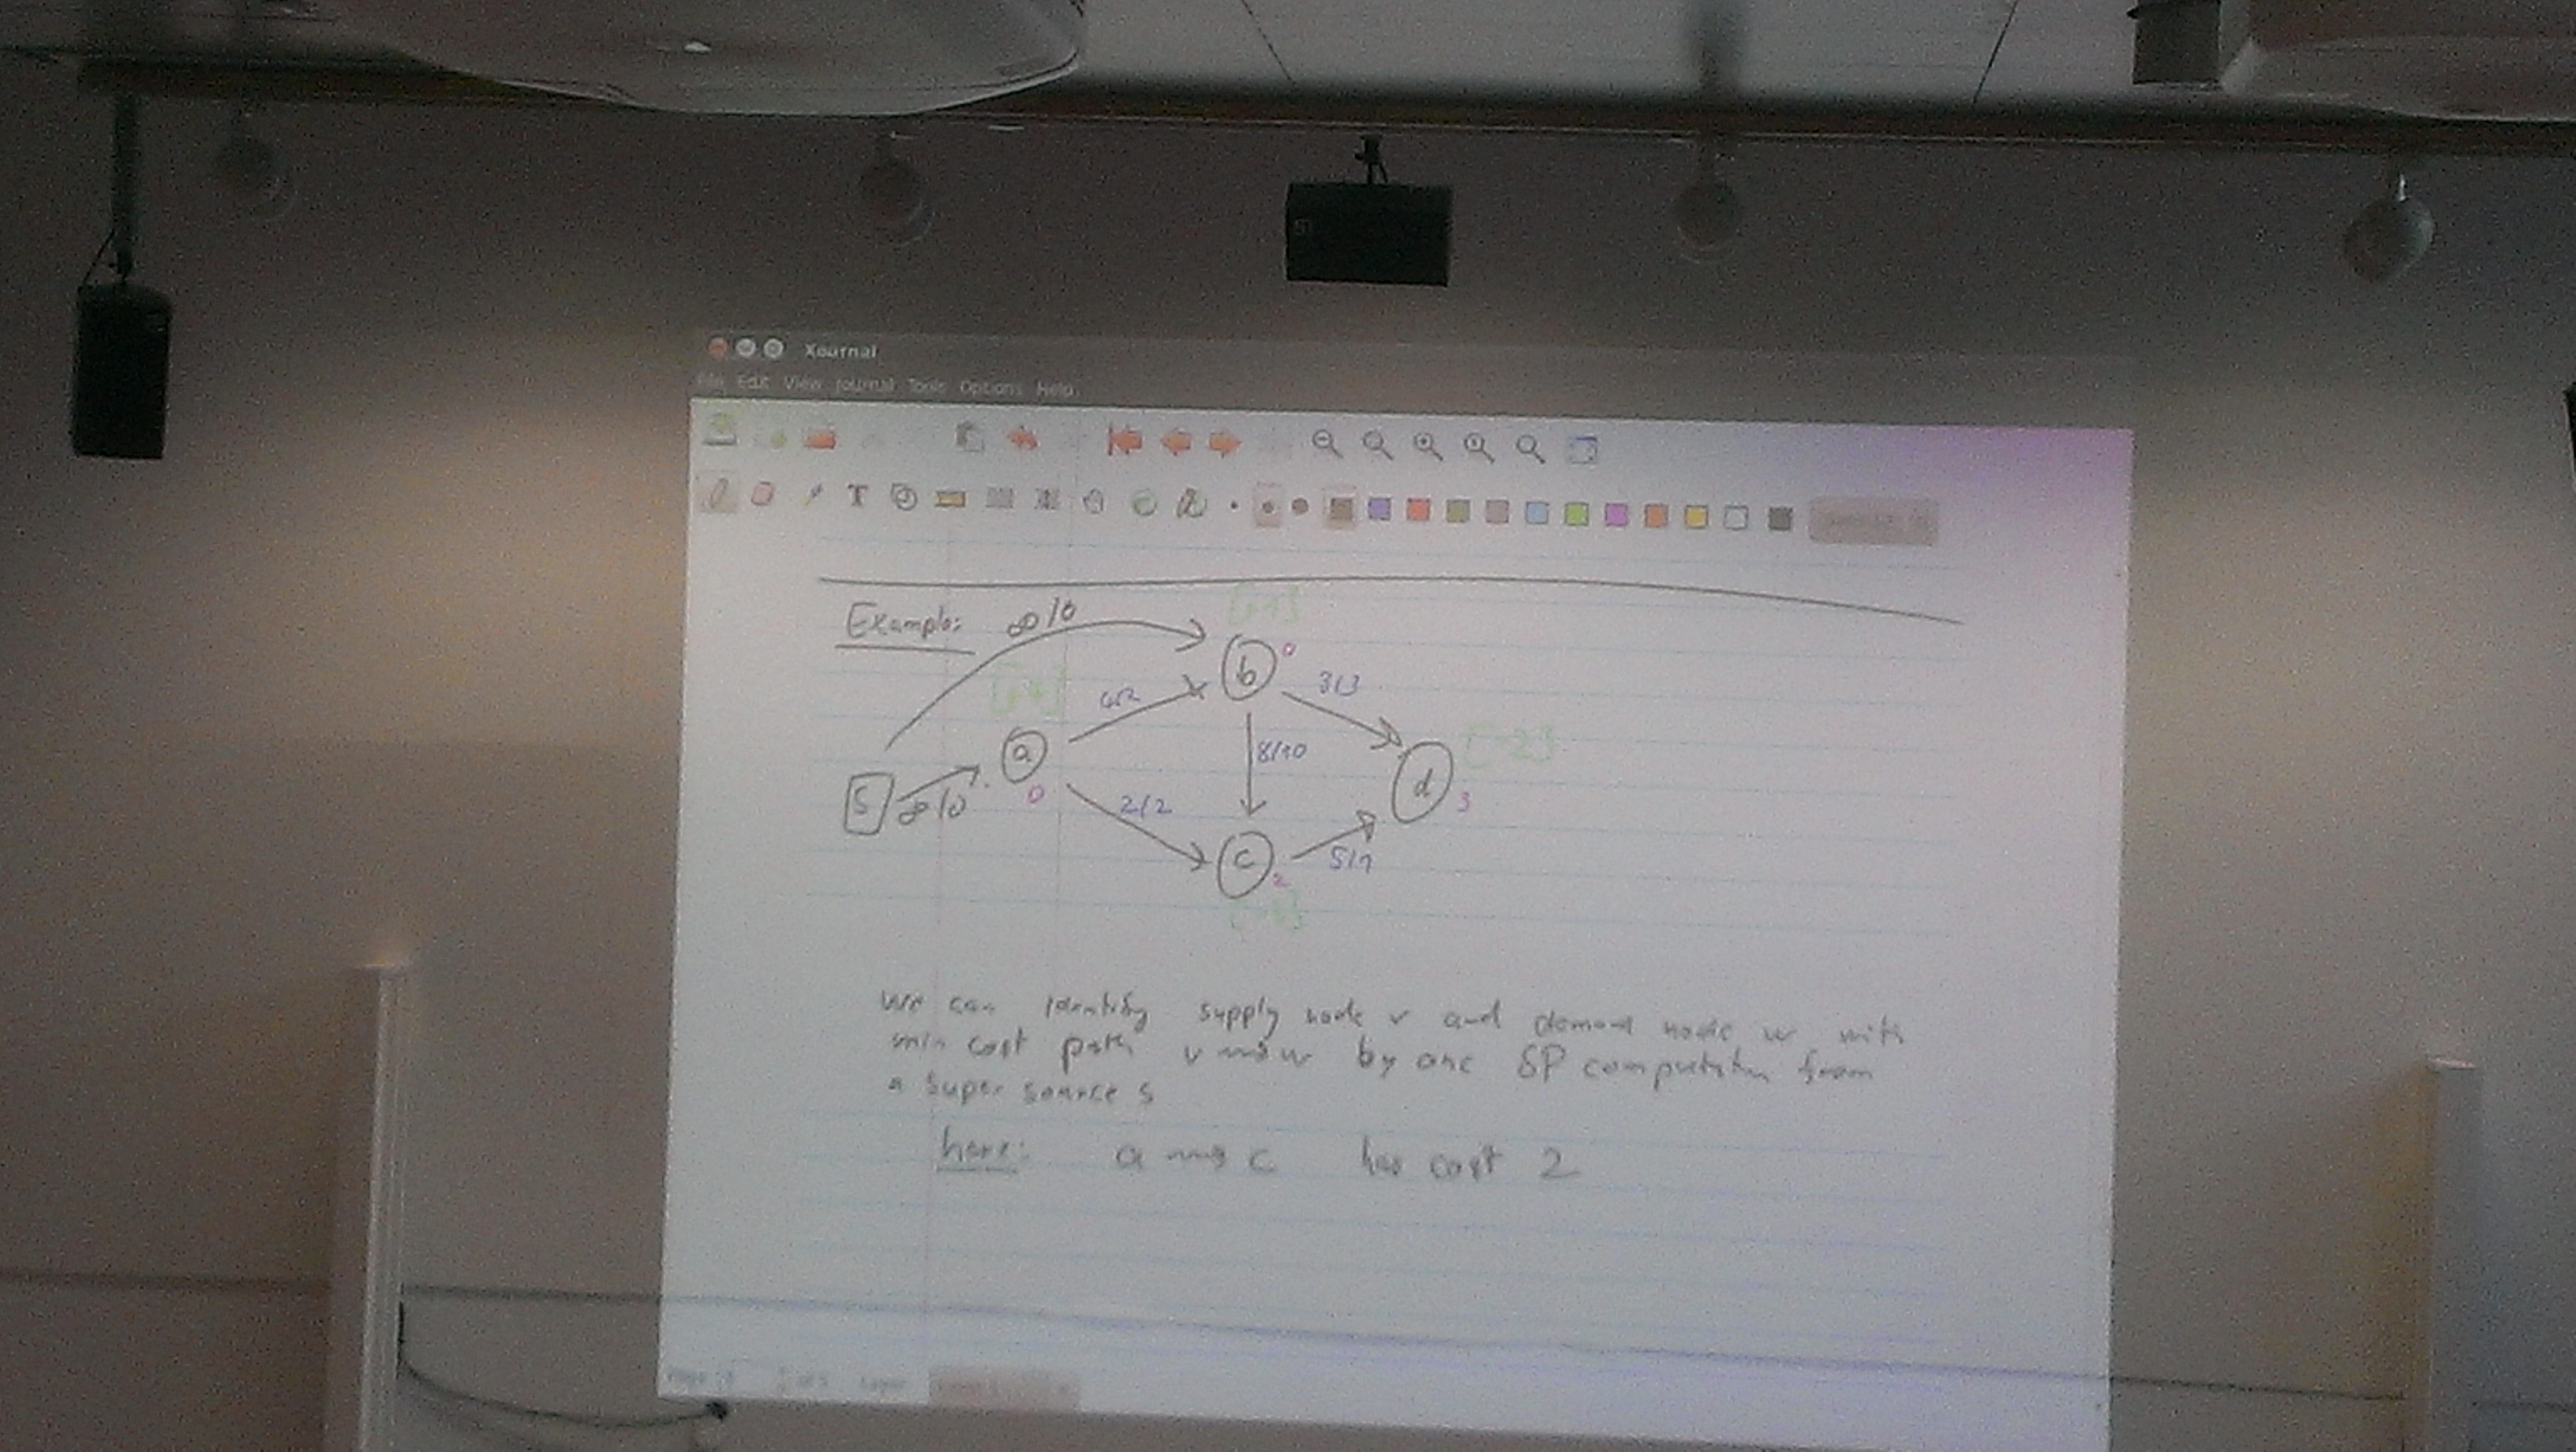 Xournal
File Edit View Journal Tools Options Help
Example:
∞/0
b
0
3/3
a
0
8/10
[-2]
d
3
S
∞/0
2/2
c
2
5/1
We can identify supply node v and demand node w with
min cost path v ⇝ w by one SP computation from
a super source s
here: a ⇝ c has cost 2